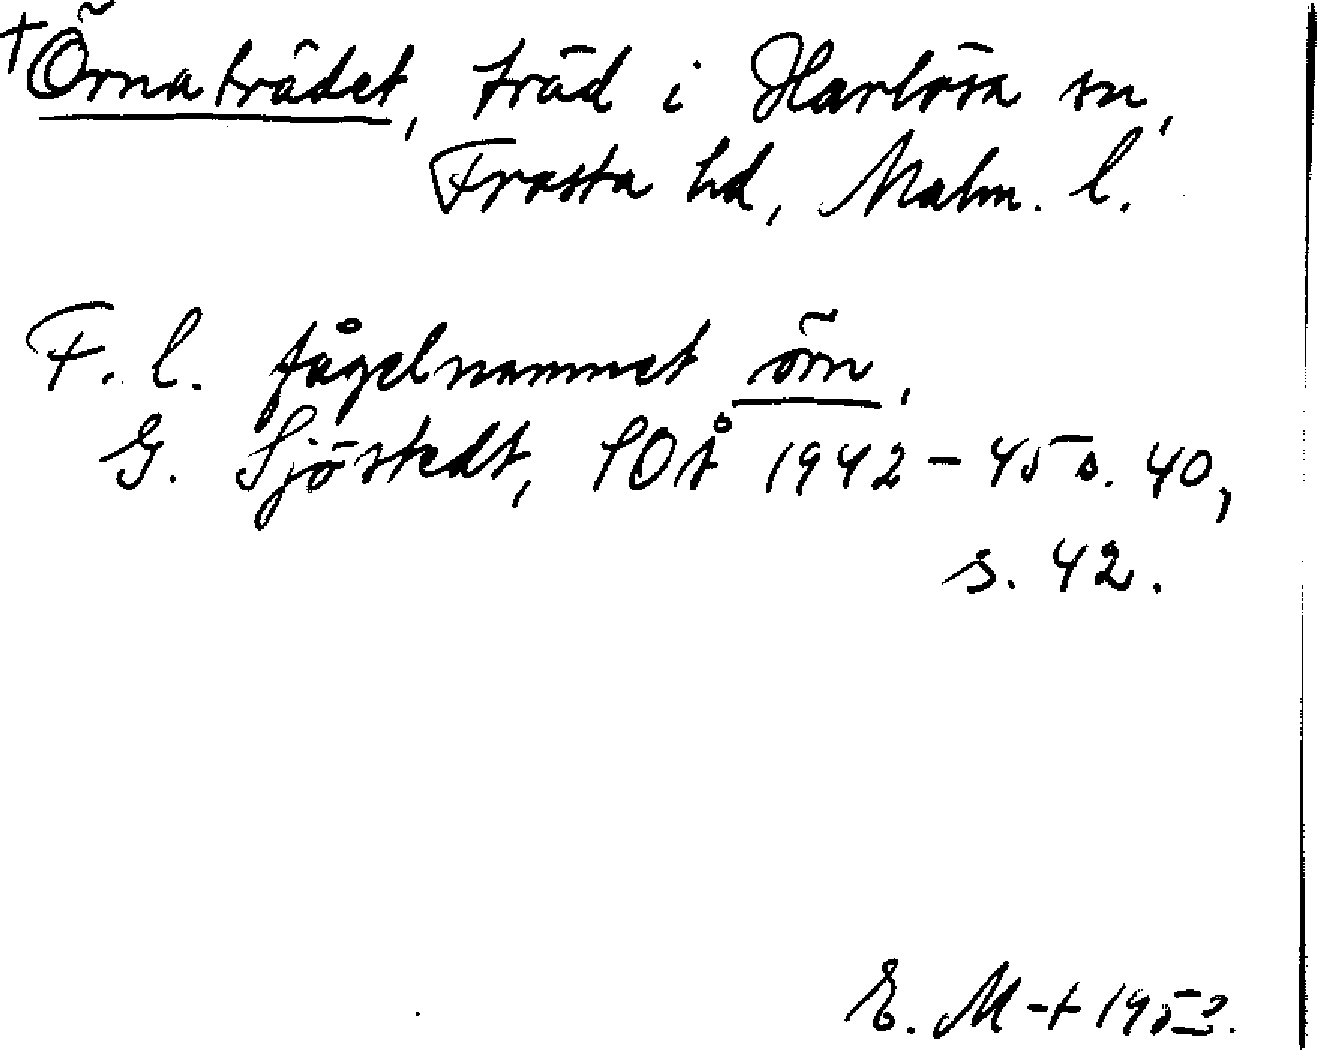 †Örnaträdet, träd i Harlösa sn,
Frosta hd, Malm. l.
F. l. fågelnamnet örn.
G. Sjöstedt, SOÅ 1942-45 s. 40,
s. 42.
E. M-t 1953.